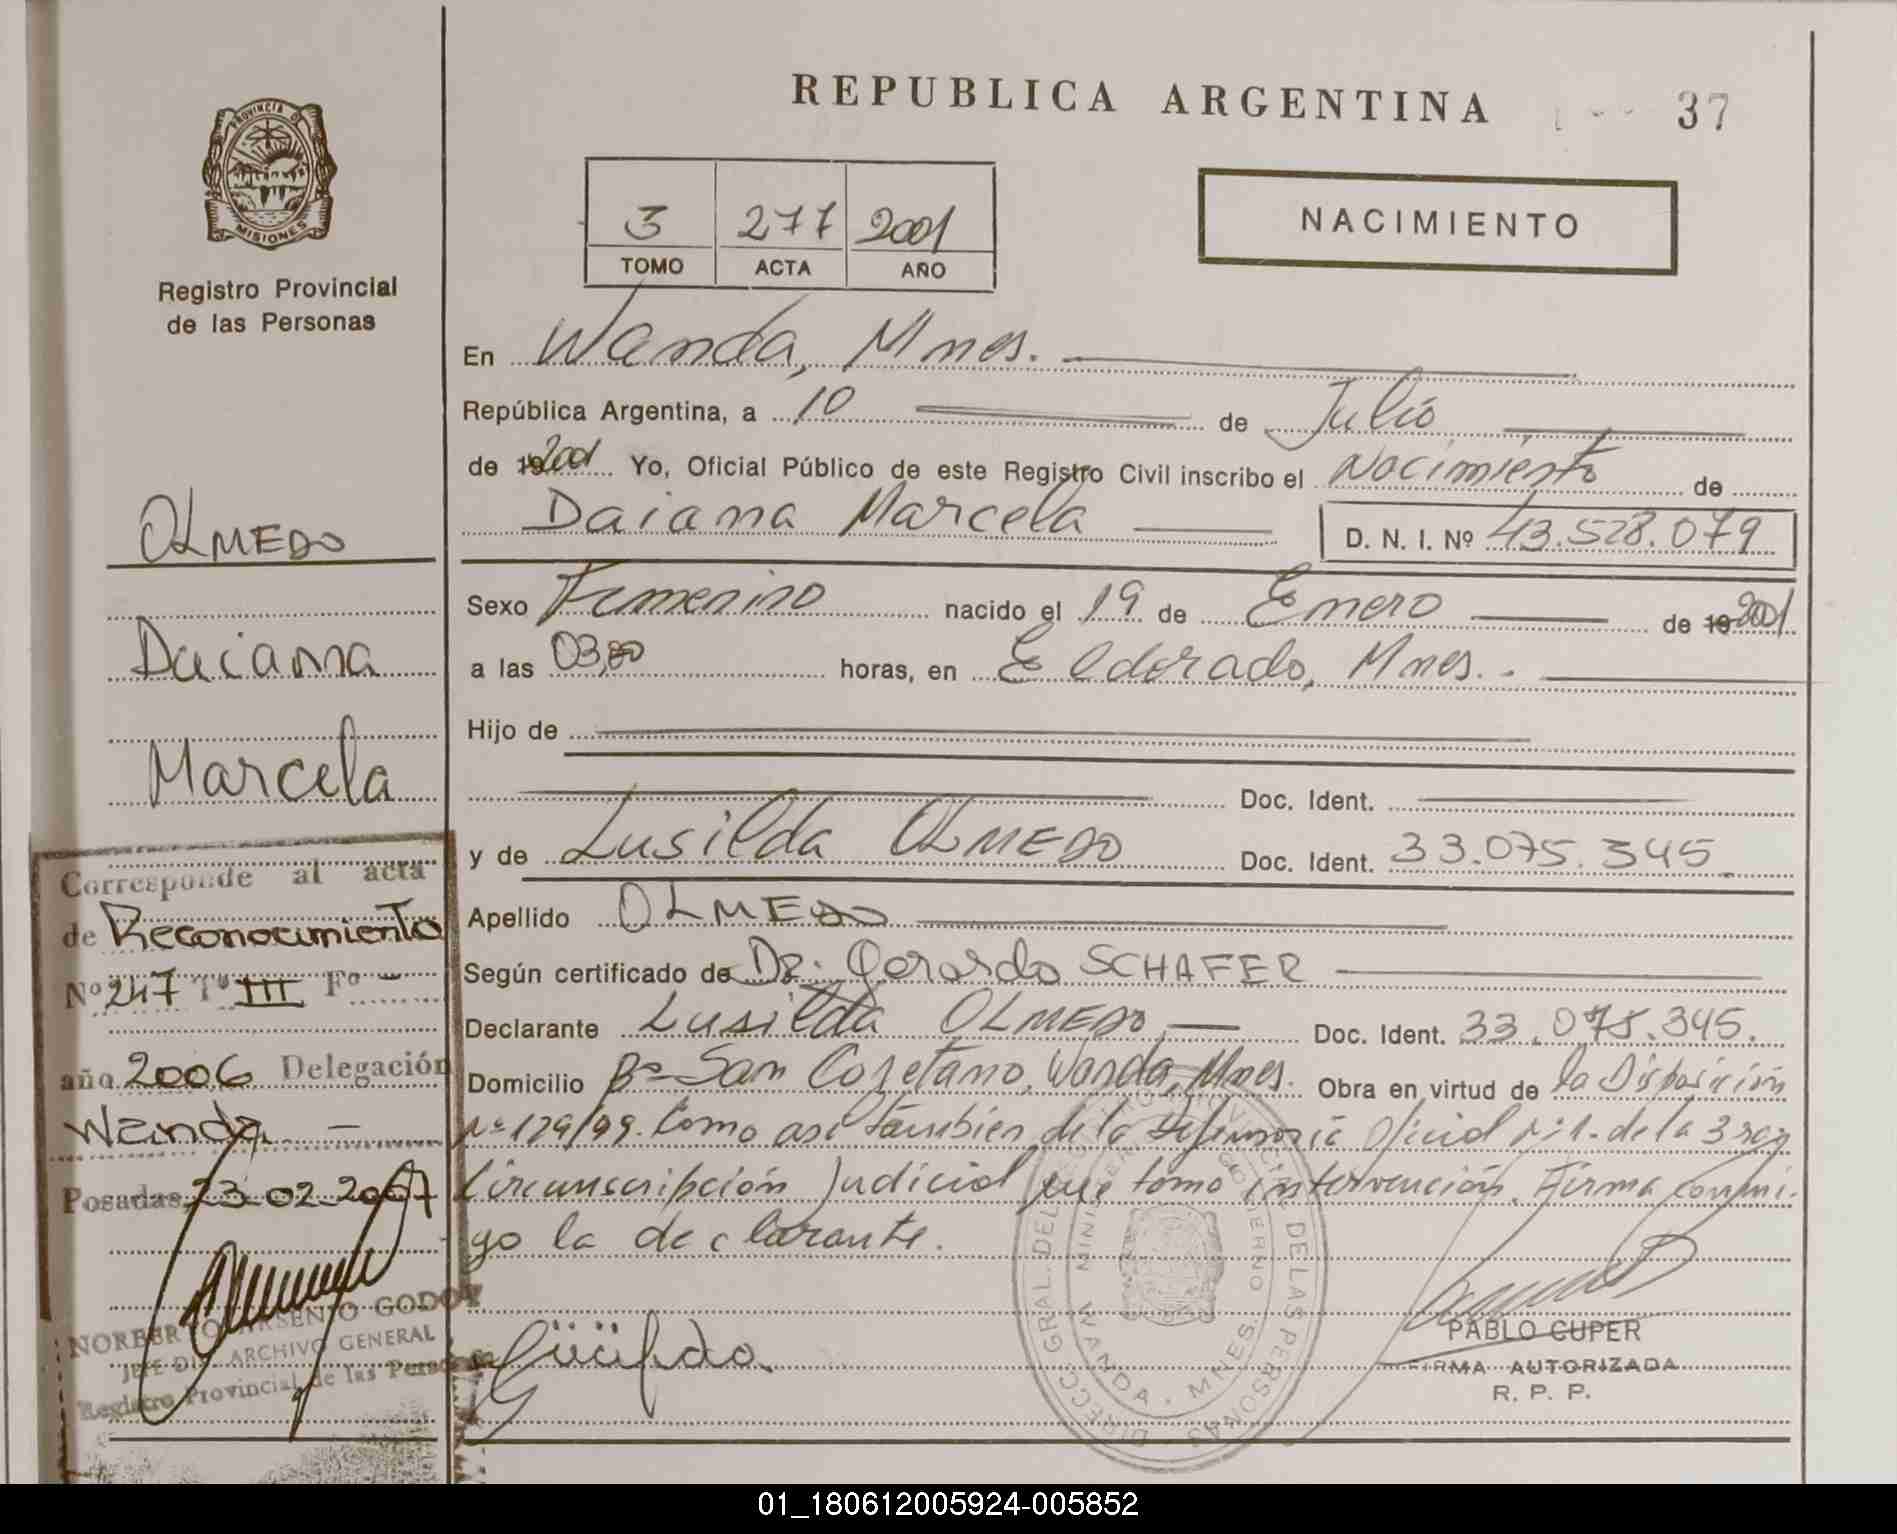 REPUBLICA ARGENTINA
37
PROVINCIA DE
MISIONES
Registro Provincial
de las Personas
3 277 2001
TOMO ACTA AÑO
NACIMIENTO
En Wanda, Mnes.
República Argentina, a 10 de Julio
de 19 2001 Yo, Oficial Público de este Registro Civil inscribo el Nacimiento de
Daiana Marcela D. N. I. Nº 43.528.079
Sexo Femenino nacido el 19 de Enero de 19 2001
a las 03,00 horas, en Eldorado, Mnes.-
Hijo de
Doc. Ident.
y de Lusilda OLMEDO Doc. Ident. 33.075.345
Apellido OLMEDO
Según certificado de Dr. Gerardo SCHAFER
Declarante Lusilda OLMEDO, Doc. Ident. 33.075.345.
Domicilio Bº San Cayetano, Wanda, Mnes. Obra en virtud de la Disposición
Nº 179/99. Como asi tambien de la Defensoria Oficial de la 3
Circunscripción Judicial que tomo intervención. Firma conmi-
go la declarante.
PABLO CUPER
FIRMA AUTORIZADA
R. P. P.
DIRECC. GRAL. DEL REGISTRO PROVINCIAL DE LAS PERSONAS
MINISTERIO DE GOBIERNO
WANDA - MNES.
OLMEDO
Daiana
Marcela
Corresponde al acta
de Reconocimiento
Nº 247 Tº III Fº -
año 2006 Delegación
Wanda -
Posadas, 23 02 2007
NORBERTO ARSENIO GODOY
JEFE DIV. ARCHIVO GENERAL
Registro Provincial de las Personas
01_180612005924-005852